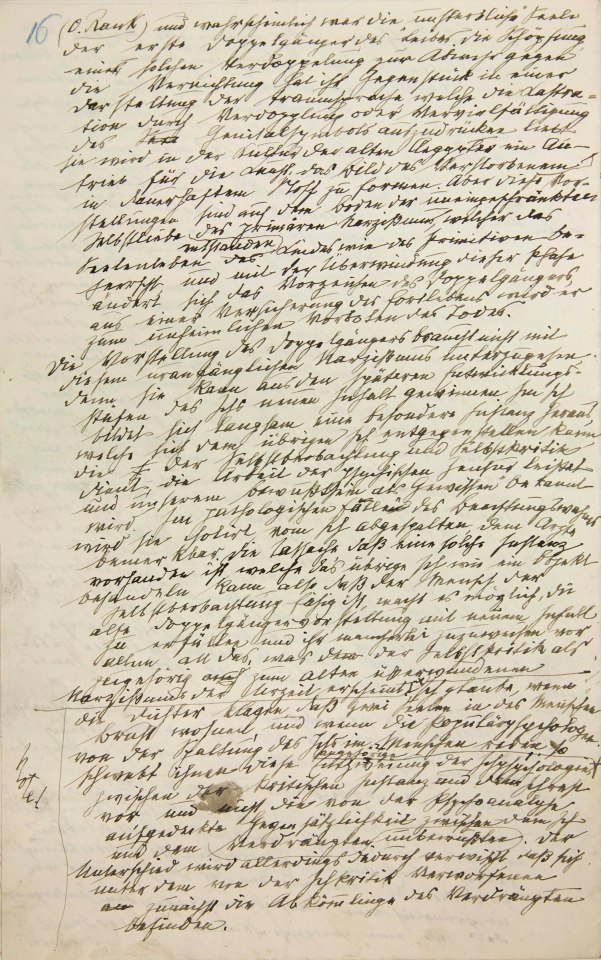 16 (O. Rank) und wahrscheinlich war die unsterbliche Seele
der erste Doppelgänger des Leibes die Schöpfung
einer solchen Verdoppelung zur Abwehr gegen
die Vernichtung hat ihr Gegenstück in einer
Darstellung der Traumsprache welche die Castra-
tion durch Verdopplung oder Vervielfältigung
des Genitalsymbols auszudrücken liebt
sie wird in der Kultur der alten Aegypter ein An-
trieb für die Kunst, das Bild des Verstorbenen
in dauerhaftem Stoff zu formen. Aber diese Vor-
stellungen sind auf dem Boden der uneingeschränkten
Selbstliebe des primären Narzißmus, welcher das
entstanden
Seelenleben des Kindes wie des Primitiven be-
herrscht, und mit der Überwindung dieser Phase
ändert sich das Vorzeichen des Doppelgängers,
aus einer Versicherung des Fortlebens wird er
zum unheimlichen Vorboten des Todes.
Die Vorstellung des Doppelgängers braucht nicht mit
diesem uranfänglichen Narzißmus unterzugehen.
denn sie kann aus den späteren Entwicklungs-
stufen des Ichs neuen Inhalt gewinnen Im Ich
bildet sich langsam eine besondere Instanz heraus
welche sich dem übrigen Ich entgegenstellen kann
die der Selbstbeobachtung und Selbstkritik
dient die Arbeit der psychischen Zensur leistet
und unserem Bewußtsein als Gewissen bekannt
wird. Im pathologischen Falle des Beachtungswahnes
wird sie isolirt vom Ich abgespalten, dem Arzte
bemerkbar. Die Tatsache daß eine solche Instanz
vorhanden ist welche das übrige Ich wie ein Objekt
behandeln kann also daß der Mensch der
Selbstbeobachtung fähig ist, macht es möglich, die
alte Doppelgängervorstellung mit neuem Inhalt
zu erfüllen und ihr mancherlei zuzuweisen vor
allem all das, was der Selbstkritik als
zugehörig zum alten überwundenen
Narzißmus der Urzeit, erscheint. Ich glaube, wenn
die Dichter klagen, daß zwei Seelen in des Menschen
Brust wohnen und wenn die Populärpsychologen
von der Spaltung des Ichs im Menschen reden, so
schwebt ihnen diese Entzweiung der Ichpsychologie
zwischen der kritischen Instanz und dem Ichrest
vor und nicht die von der Psychoanalyse
aufgedeckte Gegensätzlichkeit zwischen dem Ich
und dem Verdrängten unbewußten. Der
Unterschied wird allerdings dadurch verwischt daß sich
unter dem von der Ichkritik Verworfenen
zunächst die Abkömmlinge des Verdrängten
befinden.